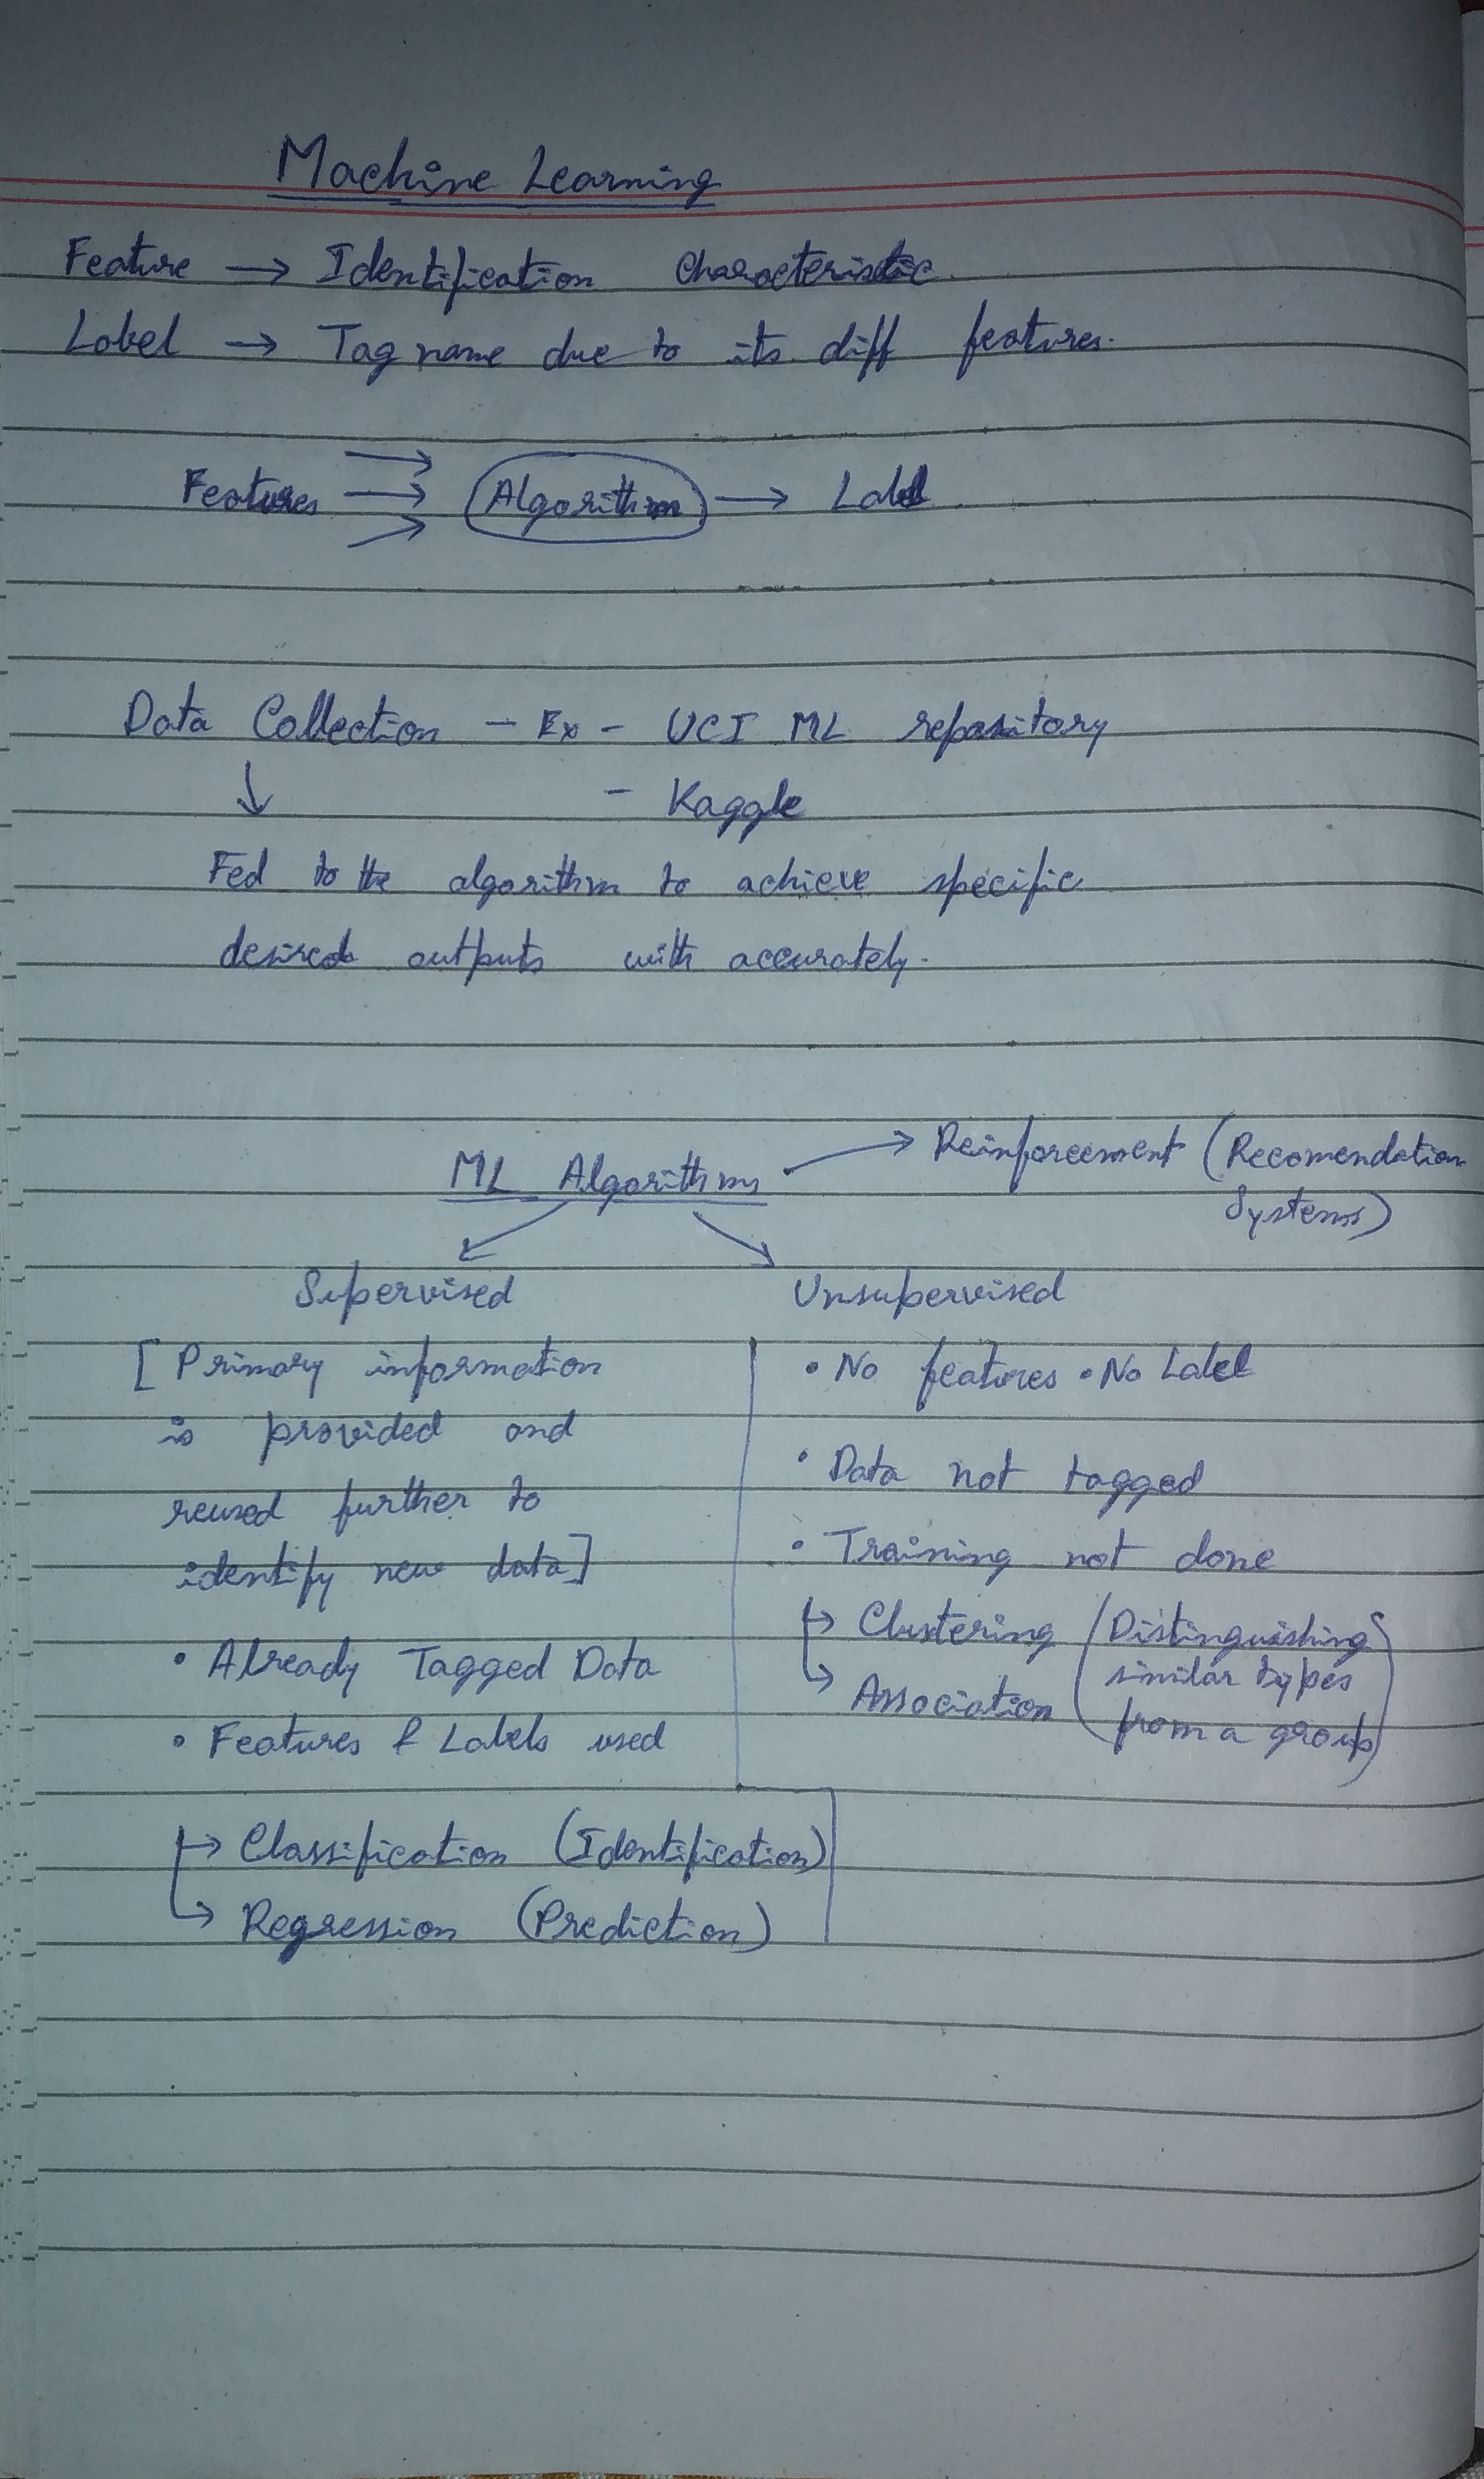 Machine Learning
Feature → Identification Characteristic.
Label → Tag name due to its diff features.
Features → Algorithm → Label
Data Collection - Ex - UCI ML repository
↓ - Kaggle
Fed to the algorithm to achieve specific
desired outputs with accurately.
ML Algorithms → Reinforcement (Recomendation
Systems)
Supervised
[Primary information
is provided and
reused further to
identify new data]
• Already Tagged Data
• Features & Labels used
→ Classification (Identification)
→ Regression (Prediction)
Unsupervised
• No features • No Label
• Data not tagged
• Training not done
→ Clustering
→ Association
(Distinguishing
similar types
from a group)